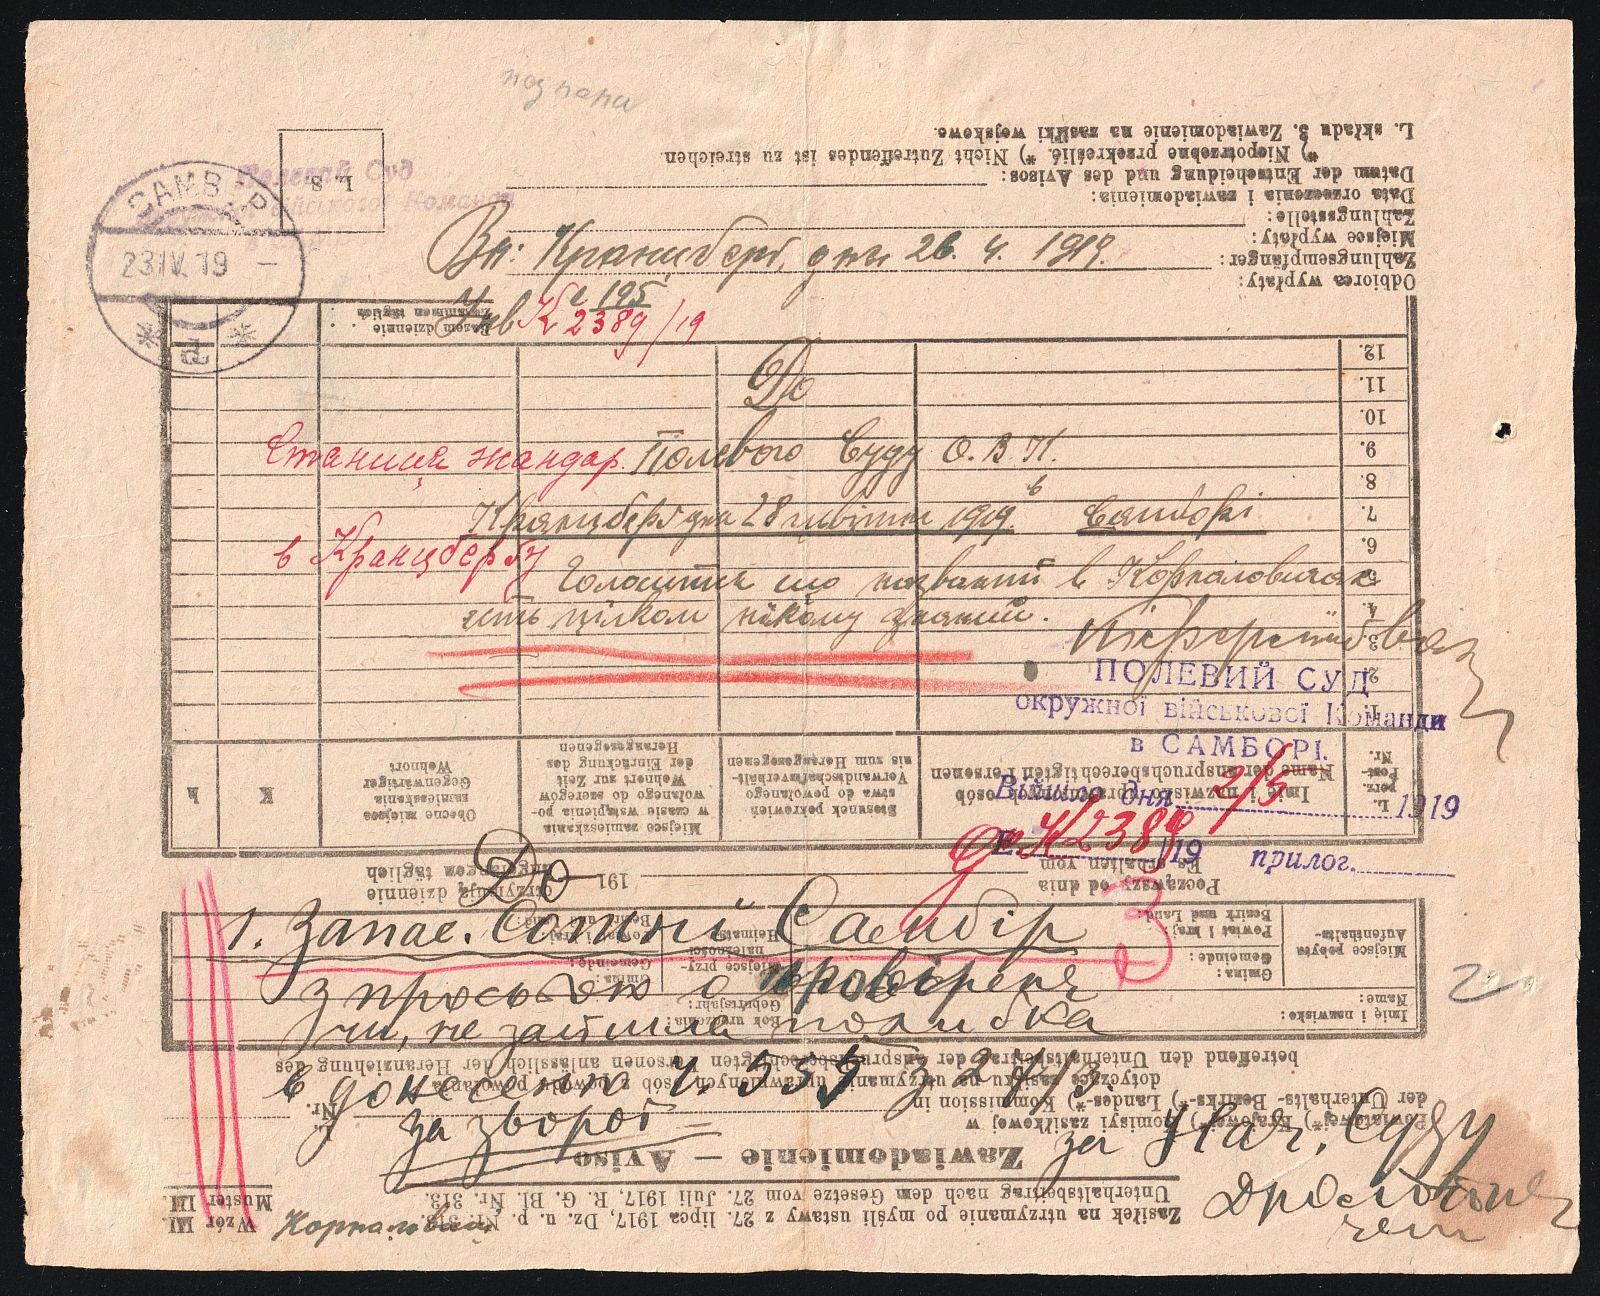 САМБІР
23.IV.19
Полевий Суд
військової Команди
L. S.
Вп: Кранцберґ, дня 26. 4. 1919.
195
К 2389/19
До
Станиця жандар.
в Кранцберґу
Полевого Суду О. В. К.
в
Самборі
Кранцберґ дня 28 цвітня 1919.
Голошу що названий в Корналовичах
єсть цілком нікому знаний.
ПОЛЕВИЙ СУД
окружної військової Команди
в САМБОРІ.
Війшло дня 2/5 1919
К 2389/19 прилог.
До
1. Запас. Сотні Самбір
з просьбою о провіреня
чи не зайшла похибка
в донесеню ч. 355 з 2/4
за зворот
за Нач. Суду
3
Odbiorca wypłaty:
Zahlungsempfänger:
Miejsce wypłaty:
Zahlungsstelle:
Data orzeczenia i zawiadomienia:
Datum der Entscheidung und des Avisos:
*) Niepotrzebne przekreślić. *) Nicht Zutreffendes ist zu streichen.
L. składu 3. Zawiadomienie na zasiłki wojskowe.
Wzór III
Muster III
Zasiłek na utrzymanie po myśli ustawy z 27. lipca 1917, Dz. u. p. Nr. 313.
Unterhaltsbeitrag nach dem Gesetze vom 27. Juli 1917, R. G. Bl. Nr. 313.
Zawiadomienie — Aviso
Powiatowej*) Krajowej*) Komisyi zasiłkowej w
der Unterhalts- Bezirks-*) Landes-*) Kommission in
L.
Nr.
dotyczące zasiłku na utrzymanie uprawnionych osób z powodu powołania
betreffend den Unterhaltsbeitrag der anspruchsberechtigten Personen anlässlich der Heranziehung des
Imię i nazwisko:
Name:
Rok urodzenia
Geburtsjahr:
Miejsce pobytu
Aufenthalts-
Gmina:
Gemeinde:
Powiat i kraj:
Bezirk und Land:
Miejsce przynależności
Heimats-
Gmina:
Gemeinde:
Począwszy od dnia
Es erhalten vom
191
otrzymują dziennie
angefangen täglich
L. porz.
Post-Nr.
Imię i nazwisko uprawnionych osób
Name der anspruchsberechtigten Personen
Stosunek pokrewieństwa do powołanego
Verwandtschaftsverhältnis zum Herangezogenen
Miejsce zamieszkania w czasie wstąpienia powołanego do szeregów
Wohnort zur Zeit der Einrückung des Herangezogenen
Obecne miejsce zamieszkania
Gegenwärtiger Wohnort
K
h
1.
2.
3.
4.
5.
6.
7.
8.
9.
10.
11.
12.
Razem dziennie
Zusammen täglich